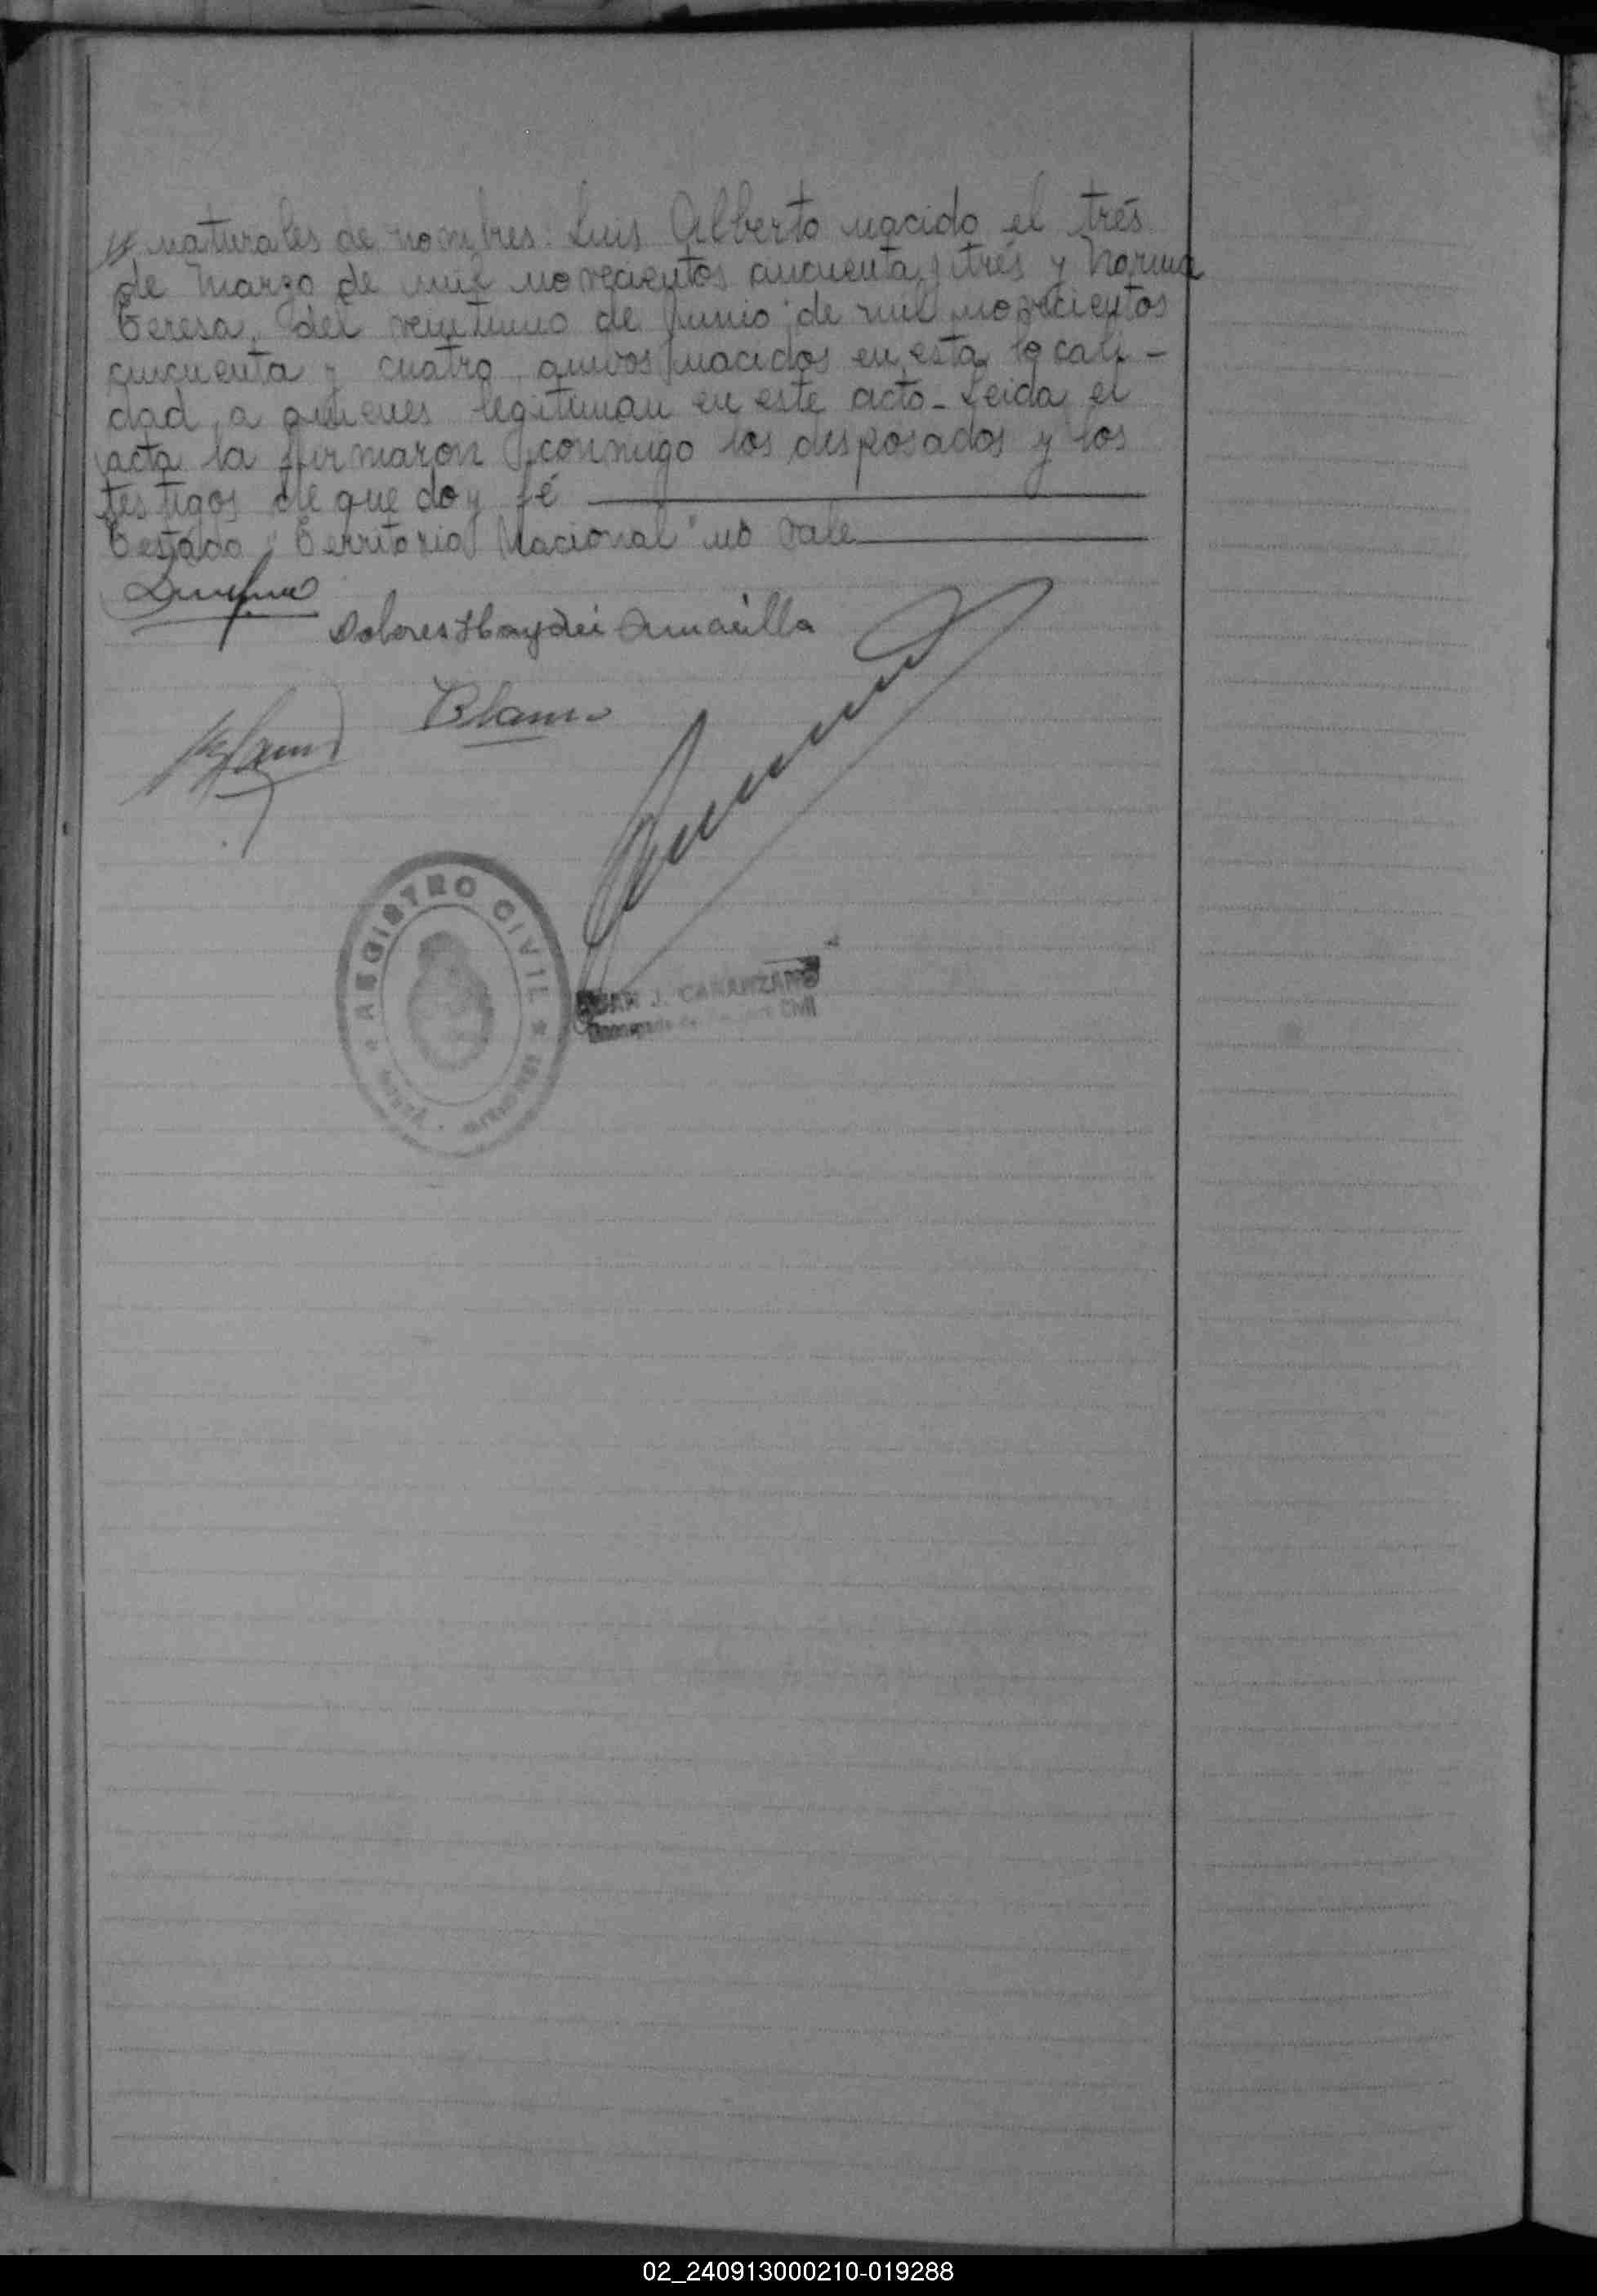 naturales de nombres: Luis Alberto nacido el trés
de Marzo de mil novecientos cincuenta y trés y Norma
Teresa, del veintiuno de Junio de mil novecientos
cincuenta y cuatro, ambos nacidos en esta locali-
dad, a quienes legitiman en este acto - Leida el
acta la firmaron conmigo los desposados y los
testigos de que doy fé
Testado: "Territorio Nacional" no vale
Dolores Haydeé Amarilla
Blanco
REGISTRO CIVIL
MISIONES
JUAN J. CARANZANO
Encargado Civil
02_240913000210-019288